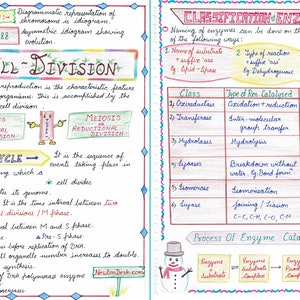 Diagrammatic representation of
chromosome is idiogram.
88
Asymmetric idiogram showing
evolution.
LL-DIVISION
reproduction is the characteristic feature
organisms. This is accomplished by the
cell division
MEIOSIS
REDUCTIONAL
DIVISION
CYCLE
It is the sequence of
events taking place in
which a
cell divides
its genome.
It is the time interval between two
divisions / M phase.
between M and S phase.
Pre-S phase.
before replication of DNA
cell organelle number increases to double.
synthesis.
of DNA polymerase enzyme
NewtonDesk.com
CLASSIFICATION
Naming of enzymes can be done on the
of the following ways:
1. Name of substrate
+ suffix 'ase'
Eg: Lipid - Lipase
2. Type of reaction
+ suffix 'ase'
Eg: Dehydrogenase
Class
Type of Rxn. Catalysed
1) Oxireductase
Oxidation + reduction
2) Transferase
Inter-molecular
group Transfer
3) Hydrolases
Hydrolysis
4) Lyases
Breakdown without
water. Eg. Bond form
5) Isomerase
Isomerisation
6) Lyase
Joining / Liasion
C-C, C-H, C-O, C-N
Process Of Enzyme Catal
Enzyme
+
Substrate
Enzyme
Substrate
Complex
Enzyme
Product